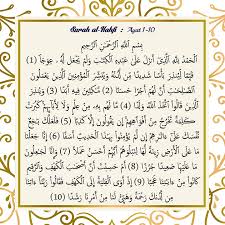 Surah al-Kahfi : Ayat 1-10
بِسْمِ اللَّهِ الرَّحْمَٰنِ الرَّحِيمِ
الْحَمْدُ لِلَّهِ الَّذِي أَنْزَلَ عَلَىٰ عَبْدِهِ الْكِتَٰبَ وَلَمْ يَجْعَلْ لَهُ ۥ عِوَجَاً (1)
قَيِّمًا لِيُنْذِرَ بَأْسًا شَدِيدًا مِنْ لَدُنْهُ وَيُبَشِّرَ الْمُؤْمِنِينَ الَّذِينَ يَعْمَلُونَ
الصَّٰلِحَٰتِ أَنَّ لَهُمْ أَجْرًا حَسَنًا (2) مَاكِثِينَ فِيهِ أَبَدًا (3) وَيُنْذِرَ
الَّذِينَ قَالُوا اتَّخَذَ اللَّهُ وَلَدًا (4) مَا لَهُمْ بِهِ مِنْ عِلْمٍ وَلَا لِآبَائِهِمْ كَبُرَتْ
كَلِمَةً تَخْرُجُ مِنْ أَفْوَاهِهِمْ إِنْ يَقُولُونَ إِلَّا كَذِبًا (5) فَلَعَلَّكَ بَاخِعٌ
نَفْسَكَ عَلَىٰ آثَارِهِمْ إِنْ لَمْ يُؤْمِنُوا بِهَٰذَا الْحَدِيثِ أَسَفًا (6) إِنَّا جَعَلْنَا
مَا عَلَى الْأَرْضِ زِينَةً لَهَا لِنَبْلُوَهُمْ أَيُّهُمْ أَحْسَنُ عَمَلًا (7) وَإِنَّا لَجَاعِلُونَ
مَا عَلَيْهَا صَعِيدًا جُرُزًا (8) أَمْ حَسِبْتَ أَنَّ أَصْحَٰبَ الْكَهْفِ وَالرَّقِيمِ
كَانُوا مِنْ آيَاتِنَا عَجَبًا (9) إِذْ أَوَى الْفِتْيَةُ إِلَى الْكَهْفِ فَقَالُوا رَبَّنَا آتِنَا
مِنْ لَدُنْكَ رَحْمَةً وَهَيِّئْ لَنَا مِنْ أَمْرِنَا رَشَدًا (10)